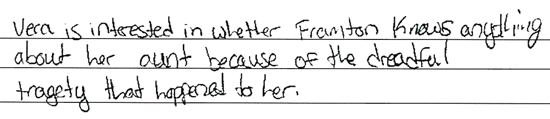 Vera is interested in whether Framton knows anything
about her aunt because of the dreadful
tragety that happened to her.